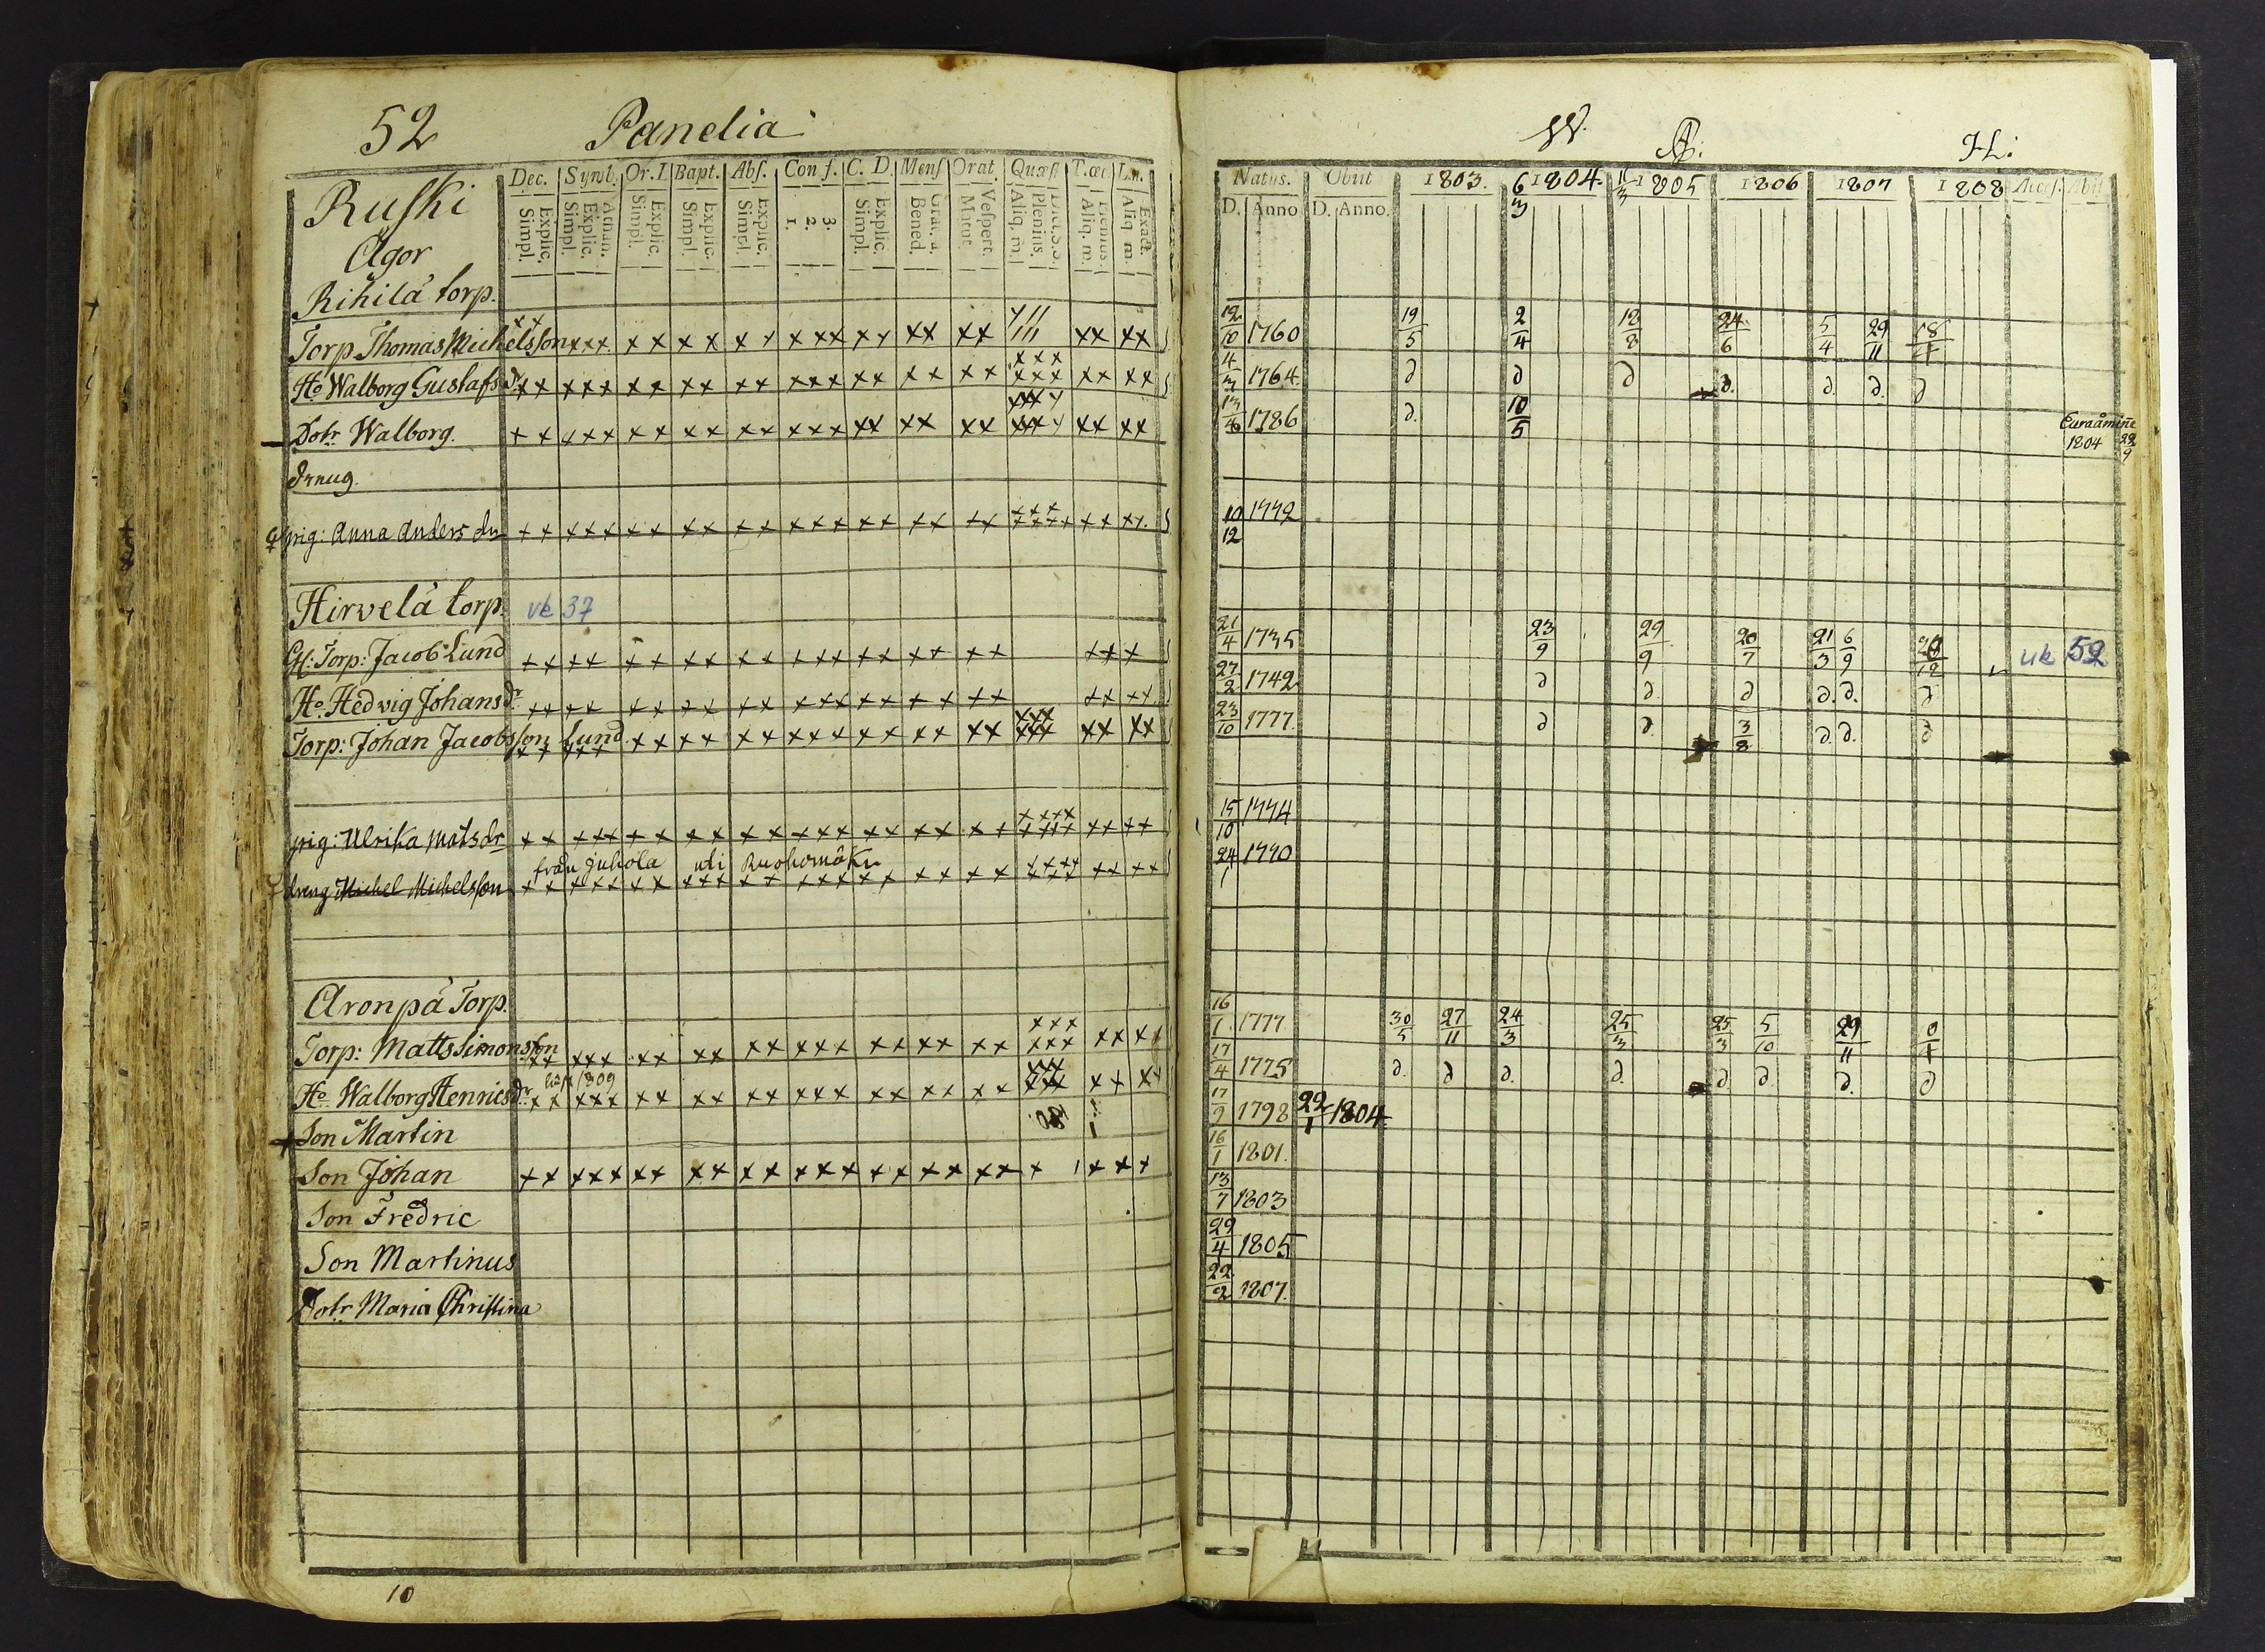 52 Panelia
Dec. Symb. Or. I. Bapt. Abs. Conf. C. D. Mens Orat. Quæst. T. œc. Ln.
Ruski
Ägor
Explic. Simpl. Athan. Explic. Simpl. Explic. Simpl. Explic. Simpl. Explic. Simpl. 3. 2. 1. Explic. Simpl. Grat. a. Bened. Vespert. Matut. Dict. S. S. Plenius. Aliq. m. Plenius. Aliq. m. Exact. Aliq. m.
Rihilä torp.
Torp Thomas Michelsson
Ho Walborg Gustafs dr
Dotr Walborg.
dreng
pig: Anna Anders dr
Hirvelä torp. vk 37
Gl: Torp: Jacob Lund
Ho. Hedvig Johans dr
Torp: Johan Jacobsson Lund
pig: Ulrika Mats dr
från Juhola uti Ruohomäki
dreng Michel Michelsson
Aronpä Torp.
Torp: Matts Simonsson
1809
Ho Walborg Henrics dr
Son Martin
Son Johan
Son Fredric
Son Martinus
Dotr Maria Christina
10
W. A: H:
Natus. Obiit 1803. 6/3 1804. 11/3 1805 1806 1807 1808 Access. Abit
D. Anno D. Anno.
12/10 1760 19/5 2/4 18/8 24/6 5/4 29/11 18/4
4/3 1764 d d d d. d. d. d
13/6 1786 d. 10/5 Euraåmine 1804 22/9
10/12 1772
21/4 1735 23/9 29/9 20/7 21/3 6/9 uk 52
27/2 1742 d d. d d. d. d
23/10 1777. d d. 3/8 d. d. d
15/10 1774
24/1 1770
16/1 1777 30/5 27/11 24/3 25/3 25/3 5/10 29/11
17/4 1775 d. d d. d. d d. d. d
17/9 1798 22/1 1804
16/1 1801.
13/7 1803
29/4 1805
22/2 1807.